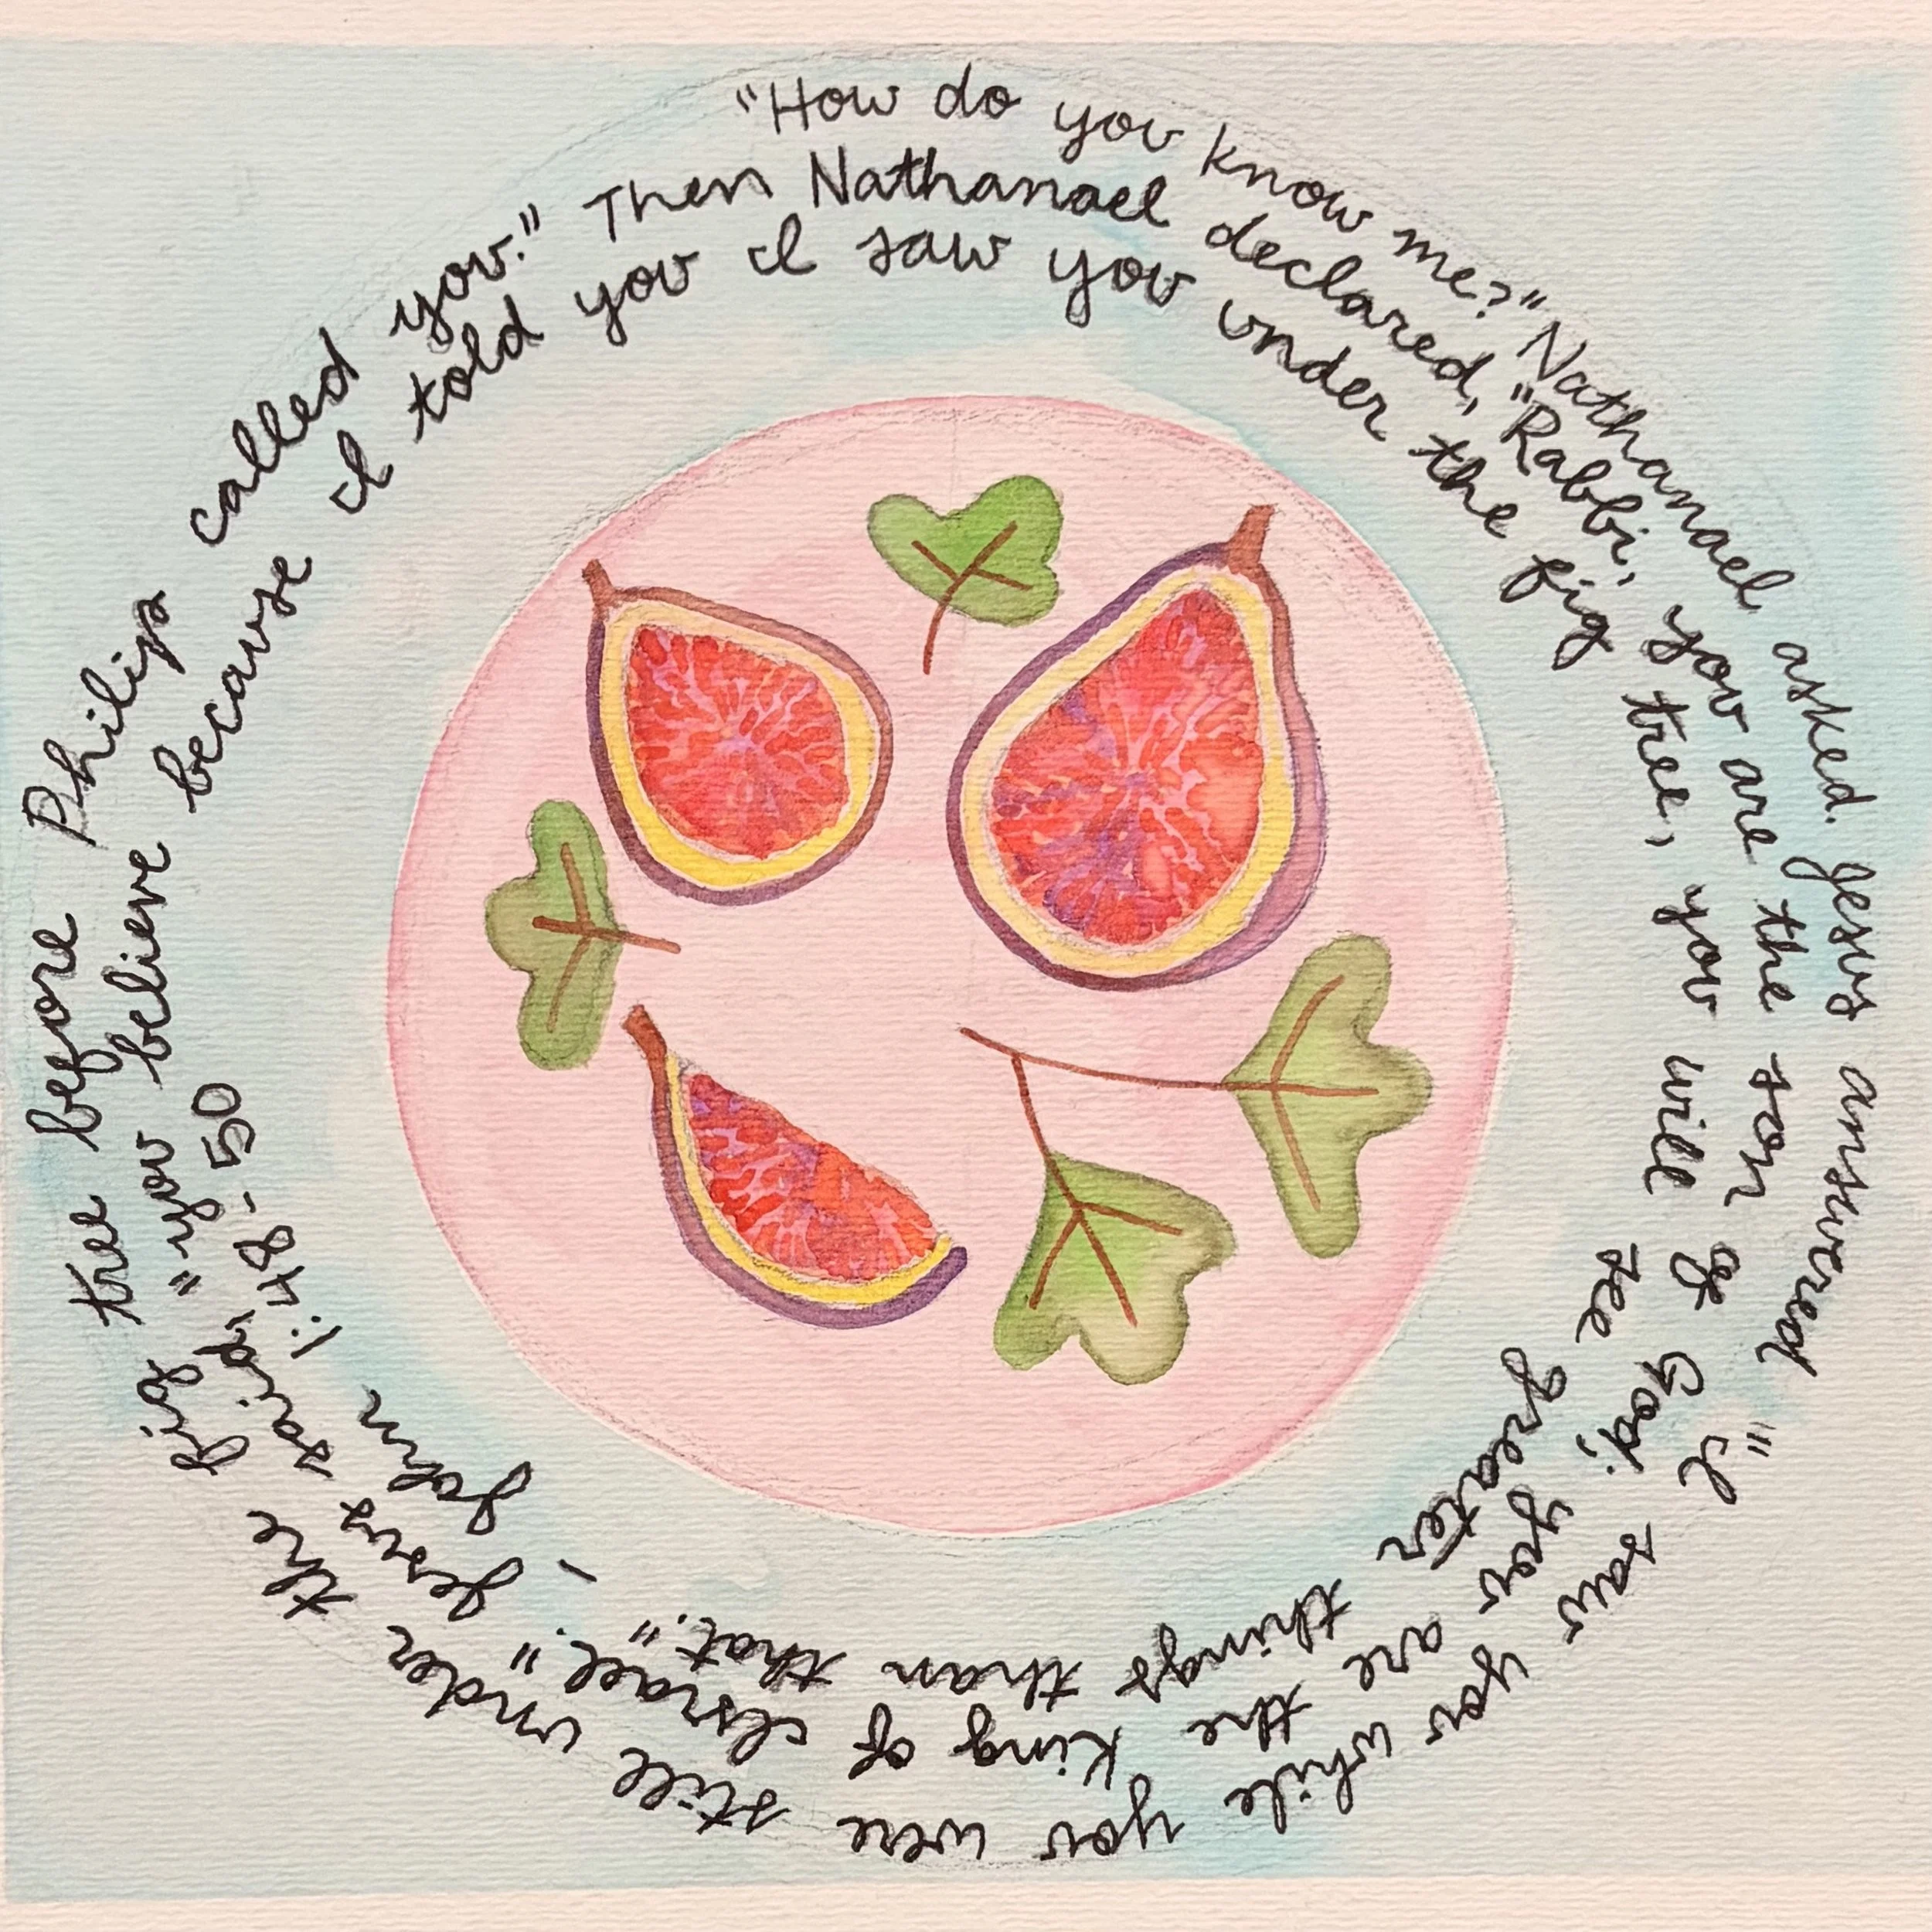 "How do you know me?" Nathanael asked. Jesus answered "I saw you while you were still under the fig tree before Philip called you."
Then Nathanael declared, "Rabbi, you are the son of God; you are the king of Israel." Jesus said, "you believe because I told you
I saw you under the fig tree, you will see greater things than that." - John 1:48-50